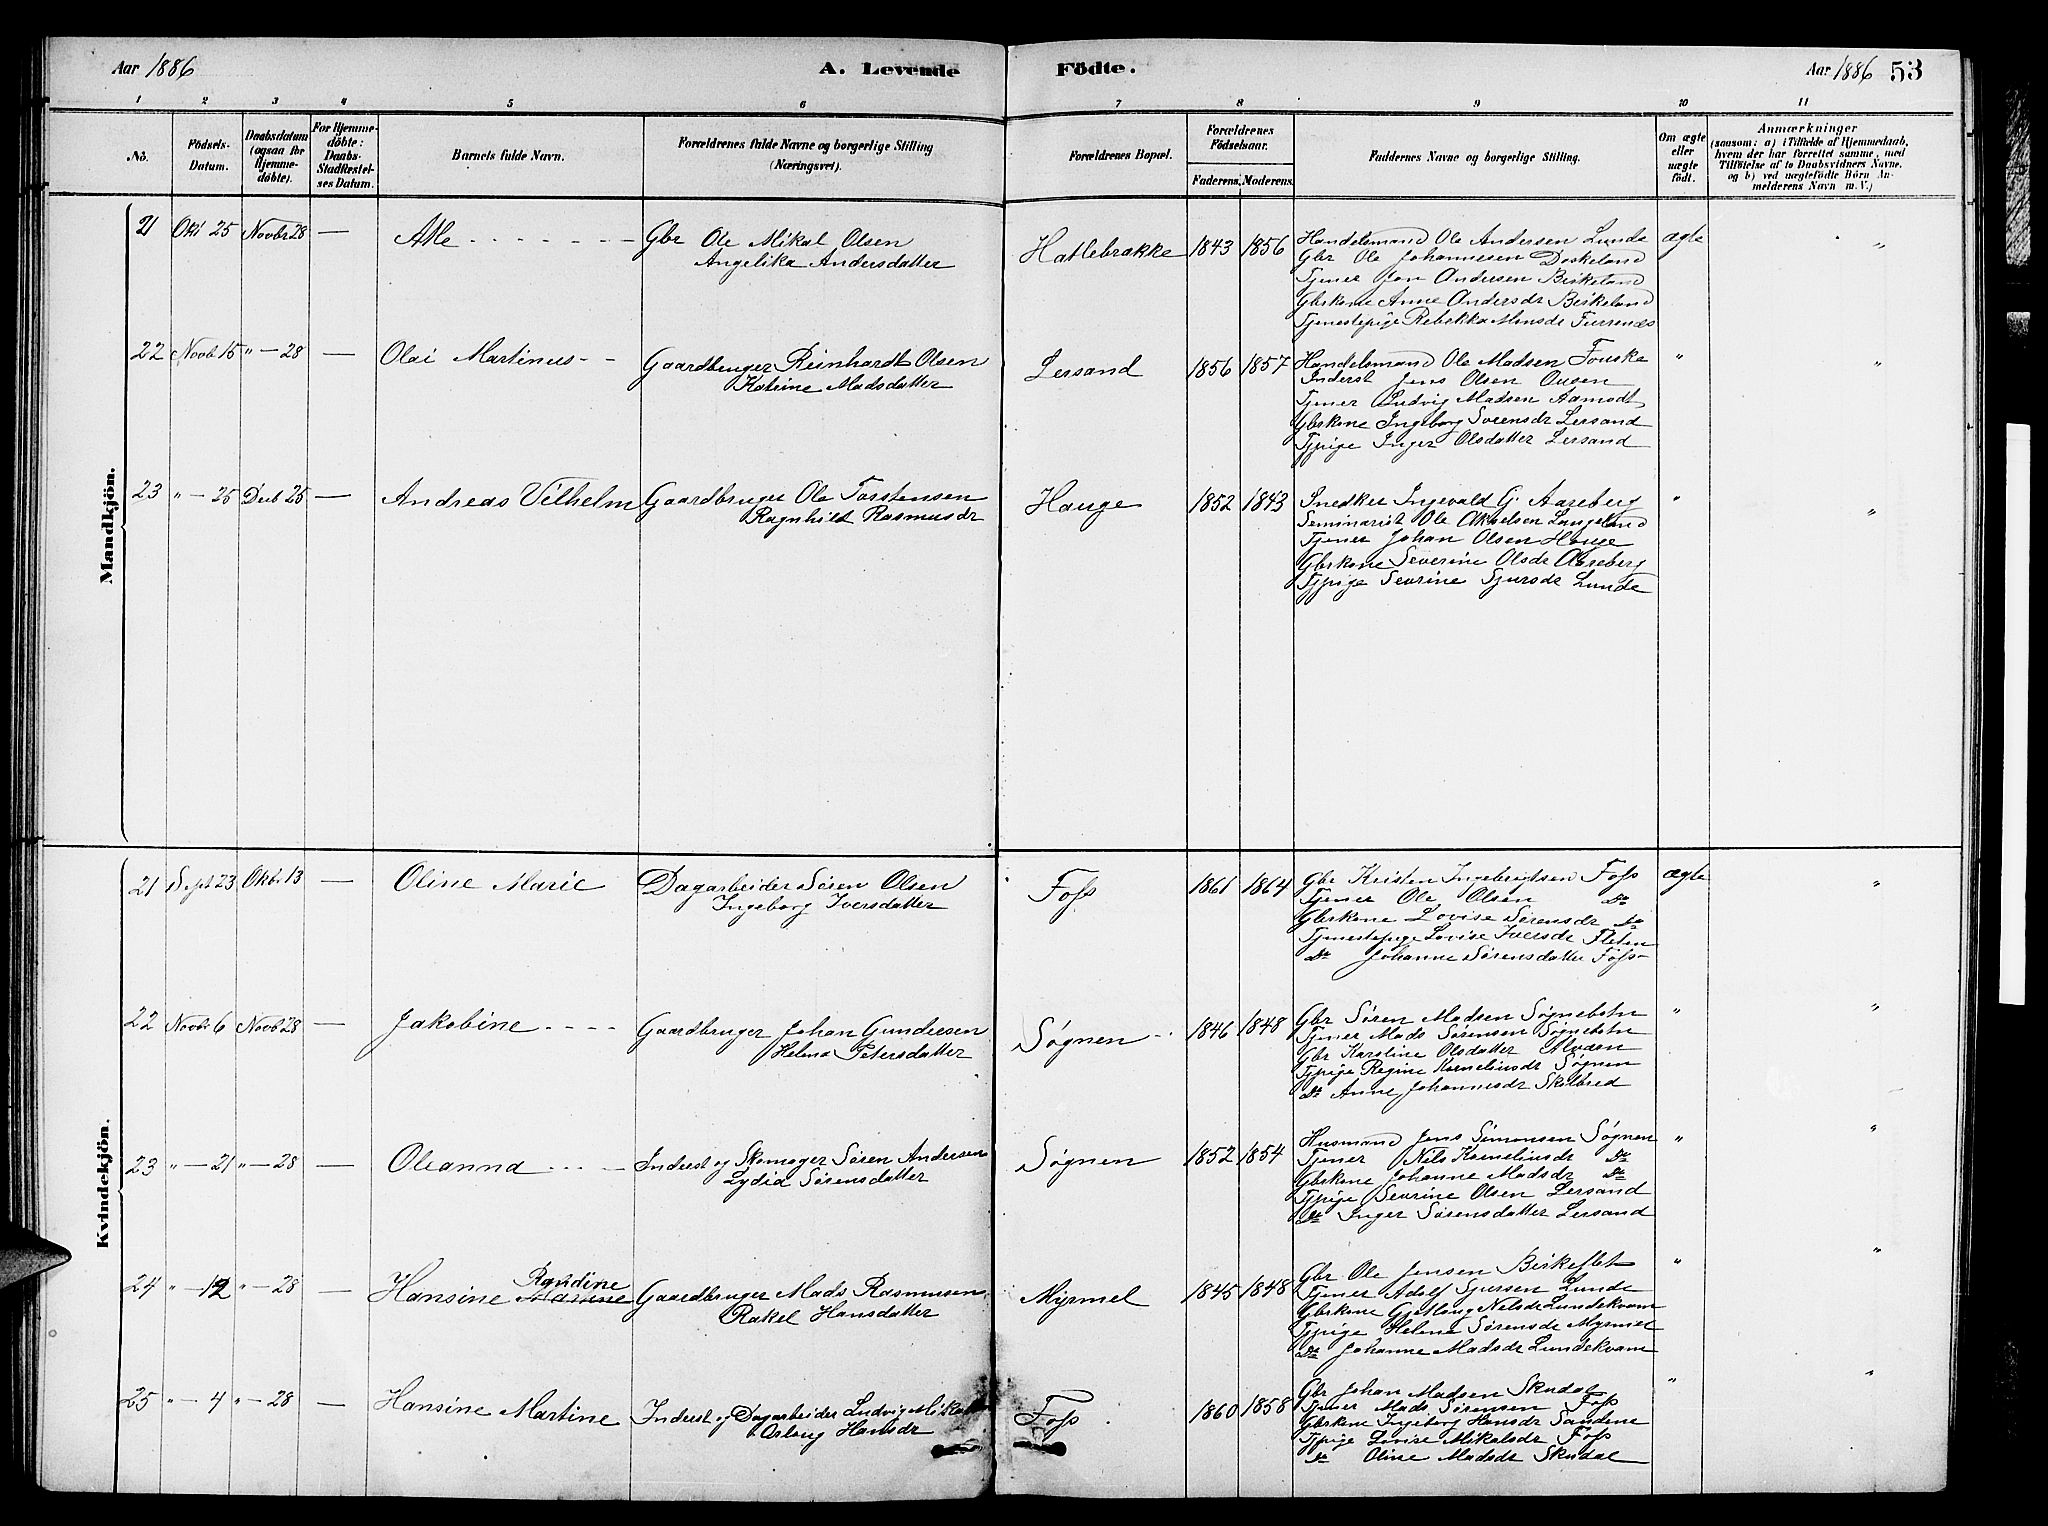 Aar 1886 A. Levende Födte. Aar 1886 53
1 2 3 4 5 6 7 8 9 10 11
No. Födsels-Datum. Daabsdatum (ogsaa for Hjemme-döbte). For Hjemme-döbte: Daabs-Stadfæstel-ses Datum. Barnets fulde Navn. Forældrenes fulde Navne og borgerlige Stilling (Næringsvei). Forældrenes Bopæl. Forældrenes Födselsaar. Faderens. Moderens. Faddernes Navne og borgerlige Stilling. Om ægte eller uægte födt. Anmærkninger (saasom: a) i Tilfælde af Hjemmedaab, hvem der har forrettet samme, med Tilföielse af to Daabsvidners Navne. og b) ved uægtefödte Börn An-melderens Navn m. V.)
Mandkjön.
21 Okt 25 Novbr 28 — Atle - - - - - - - Gbr Ole Mikal Olsen Hatlebrække 1843 1856 Handelsmand Ole Andersen Lunde ægte "
Angelika Andersdatter Gbr Ole Johannesen Doskeland
Tjener Jon Andersen Birkeland
Gbrkone Anne Andersdr Birkeland
Tjenestepige Rebekka Monsdr Furrenæs
22 Novb 15 " — 28 — Olai Martinus - - Gaardbruger Reinhardt Olsen Lersand 1856 1857 Handelsmand Ole Madsen Fouske " "
Katrine Madsdatter Inderst Jens Olsen
Tjener Ludvig Madsen Aamodt
Gbrkone Ingeborg Sørensdr Lersand
Tjpige Inger Olsdatter Lersand
23 " — 25 Decb 25 — Andreas Vilhelm Gaardbruger Ole Torstensen Hauge 1852 1843 Snedker Ingevald G. Aareberg " "
Ragnhild Rasmusdr Seminarist Ole Akselsen Langeland
Tjener Johan Olsen Hauge
Gbrkone Severine Olsdr Aareberg
Tjpige Severine Sjursdr Lunde
Kvindekjön.
21 Sept 23 Oktbr 13 — Oline Marie Dagarbeider Søren Olsen Foss 1861 1864 Gbr Kristen Ingebrigtsen Foss ægte "
Ingeborg Iversdatter Tjener Ole Olsen Do
Gbrkone Lovise Sørensdr Do
Tjenestepige Lovise Iversdr Fleten
Do Johanne Sørensdatter Foss
22 Novbr 6 Novb 28 — Jakobine - - - - Gaardbruger Johan Gundersen Søgnen - 1846 1848 Gbr Søren Madsen Søgnebotn " "
Helena Petersdatter Tjener Mads Sørensen Søgnebotn
Gbr Karoline Olsdatter
Tjpige Regine Kornelinsdr Søgnen
Do Anne Johannesdr Skilbred
23 " — 21 " — 28 — Oleanna - - - - Inderst og Skomager Søren Andersen Søgnen 1852 1854 Husmand Jens Simonsen Søgnen " "
Lydia Sørensdatter Tjener Nils Kornelinsdr Do
Gbrkone Johanne Madsdr Do
Tjpige Severine Olsen Lersand
Do Inger Sørensdatter Lersand
24 " — 12 " — 28 — Hansine Martine Randine Gaardbruger Mads Rasmussen Myrmel 1845 1848 Gbr Ole Jensen Birkeflet " "
Rakel Hansdatter Tjener Adolf Sjursen Lunde
Gbrkone Gjetlaug Nilsdr Lundekvam
Tjpige Helene Sørensdr Myrmel
Do Johanne Madsdr Lundekvam
25 " — 4 " — 28 — Hansine Martine Inderst og Dagarbeider Ludvig Foss 1860 1858 Gbr Johan Madsen Skudal " "
Hansdr Tjener Mads Sørensen Foss
Gbrkone Ingeborg Hansdr Sandene
Tjpige Lovise Mikalsdr Foss
Do Oline Madsdr Skudal